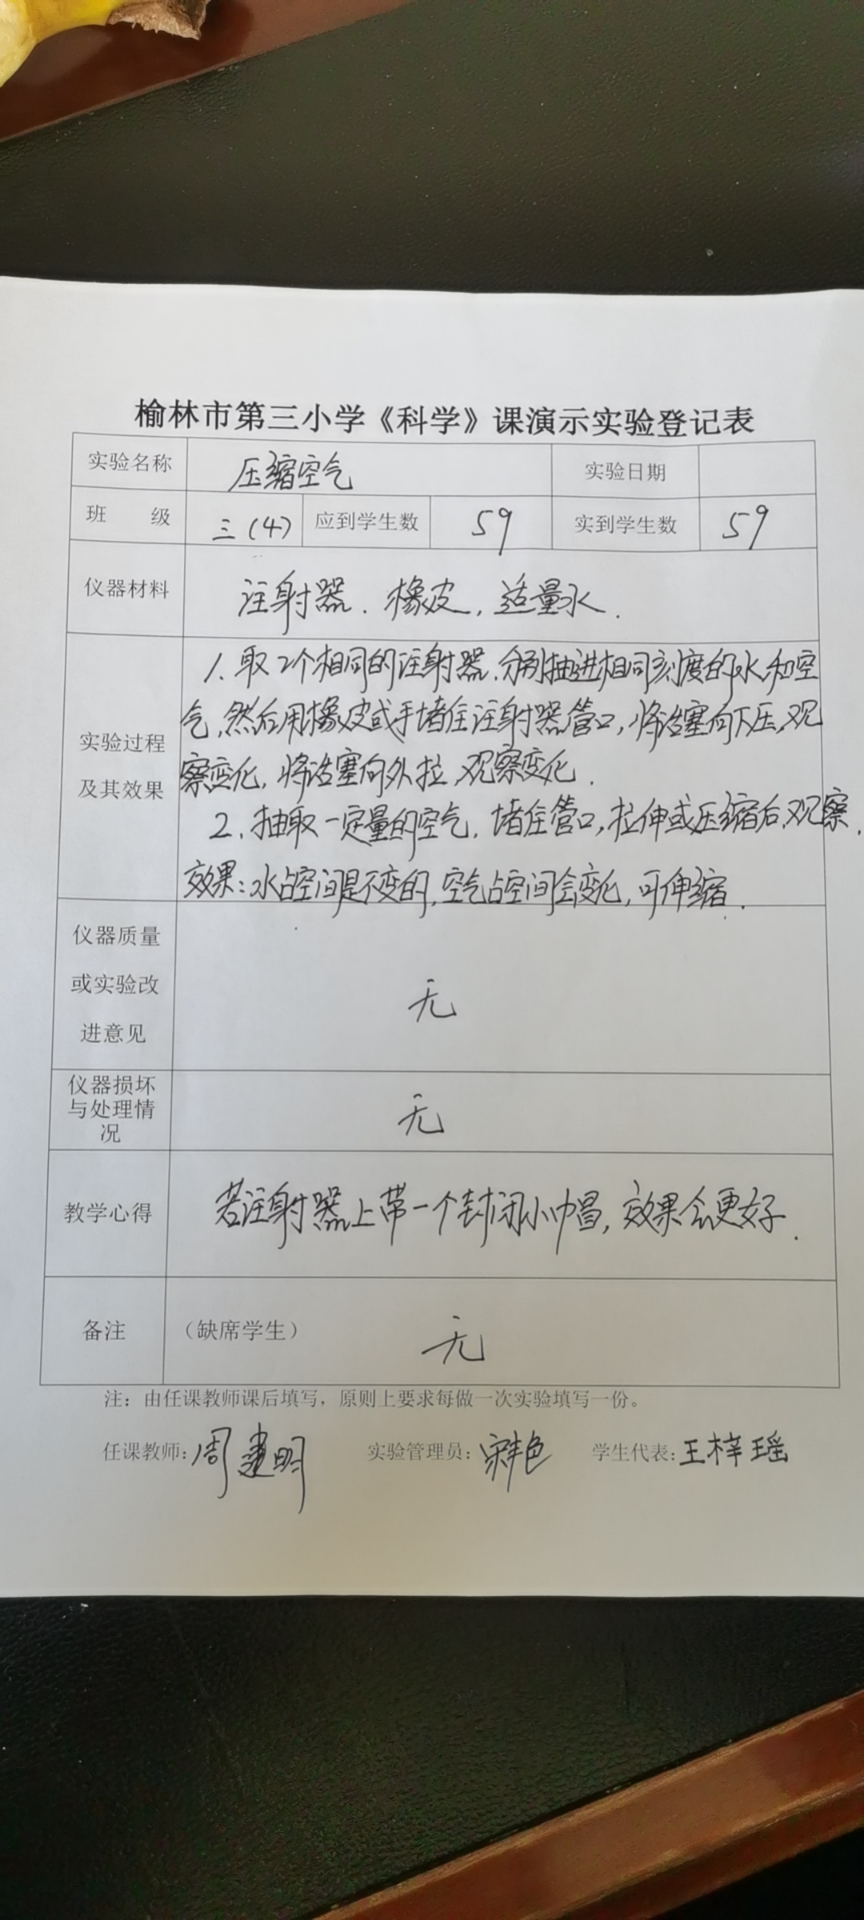 榆林市第三小学《科学》课演示实验登记表
实验名称 压缩空气 实验日期
班 级 三（4） 应到学生数 59 实到学生数 59
仪器材料 注射器、橡皮，适量水．
1. 取2个相同的注射器、分别抽进相同刻度的水和空
气，然后用橡皮或手堵住注射器管口，将活塞向下压，观
察变化，将活塞向外拉，观察变化．
2. 抽取一定量的空气，堵住管口，拉伸或压缩后，观察．
效果：水占空间是不变的，空气占空间会变化，可伸缩．
实验过程
及其效果
仪器质量
或实验改
进意见
无
仪器损坏
与处理情
况
无
教学心得 若注射器上带一个封闭小帽，效果会更好．
备注 （缺席学生） 无
注：由任课教师课后填写，原则上要求每做一次实验填写一份。
任课教师：周建明 实验管理员：宋艳 学生代表：王梓瑶